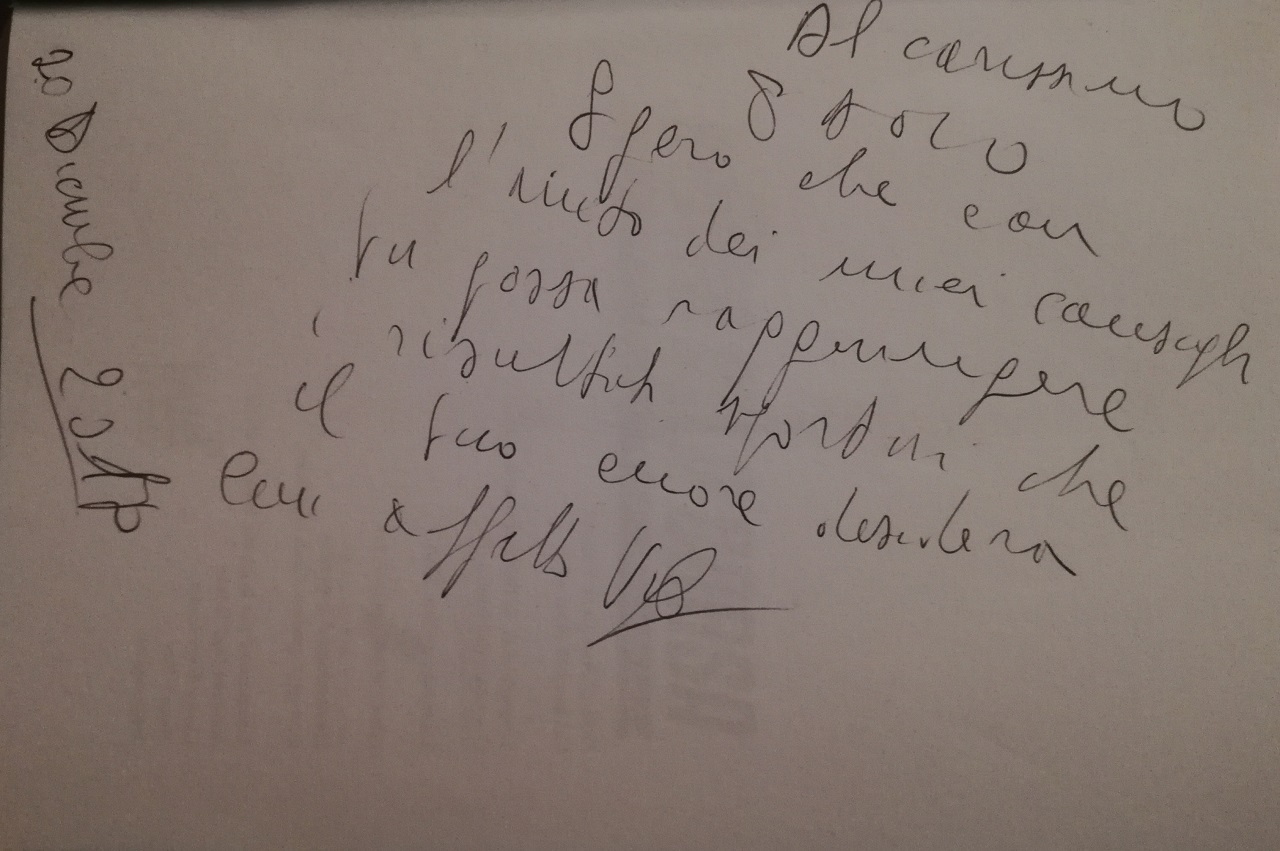 Al carissimo
Spero che con
l'aiuto dei miei consigli
tu possa raggiungere
i risultati sportivi che
il tuo cuore desidera
Con affetto
20 Dicembre